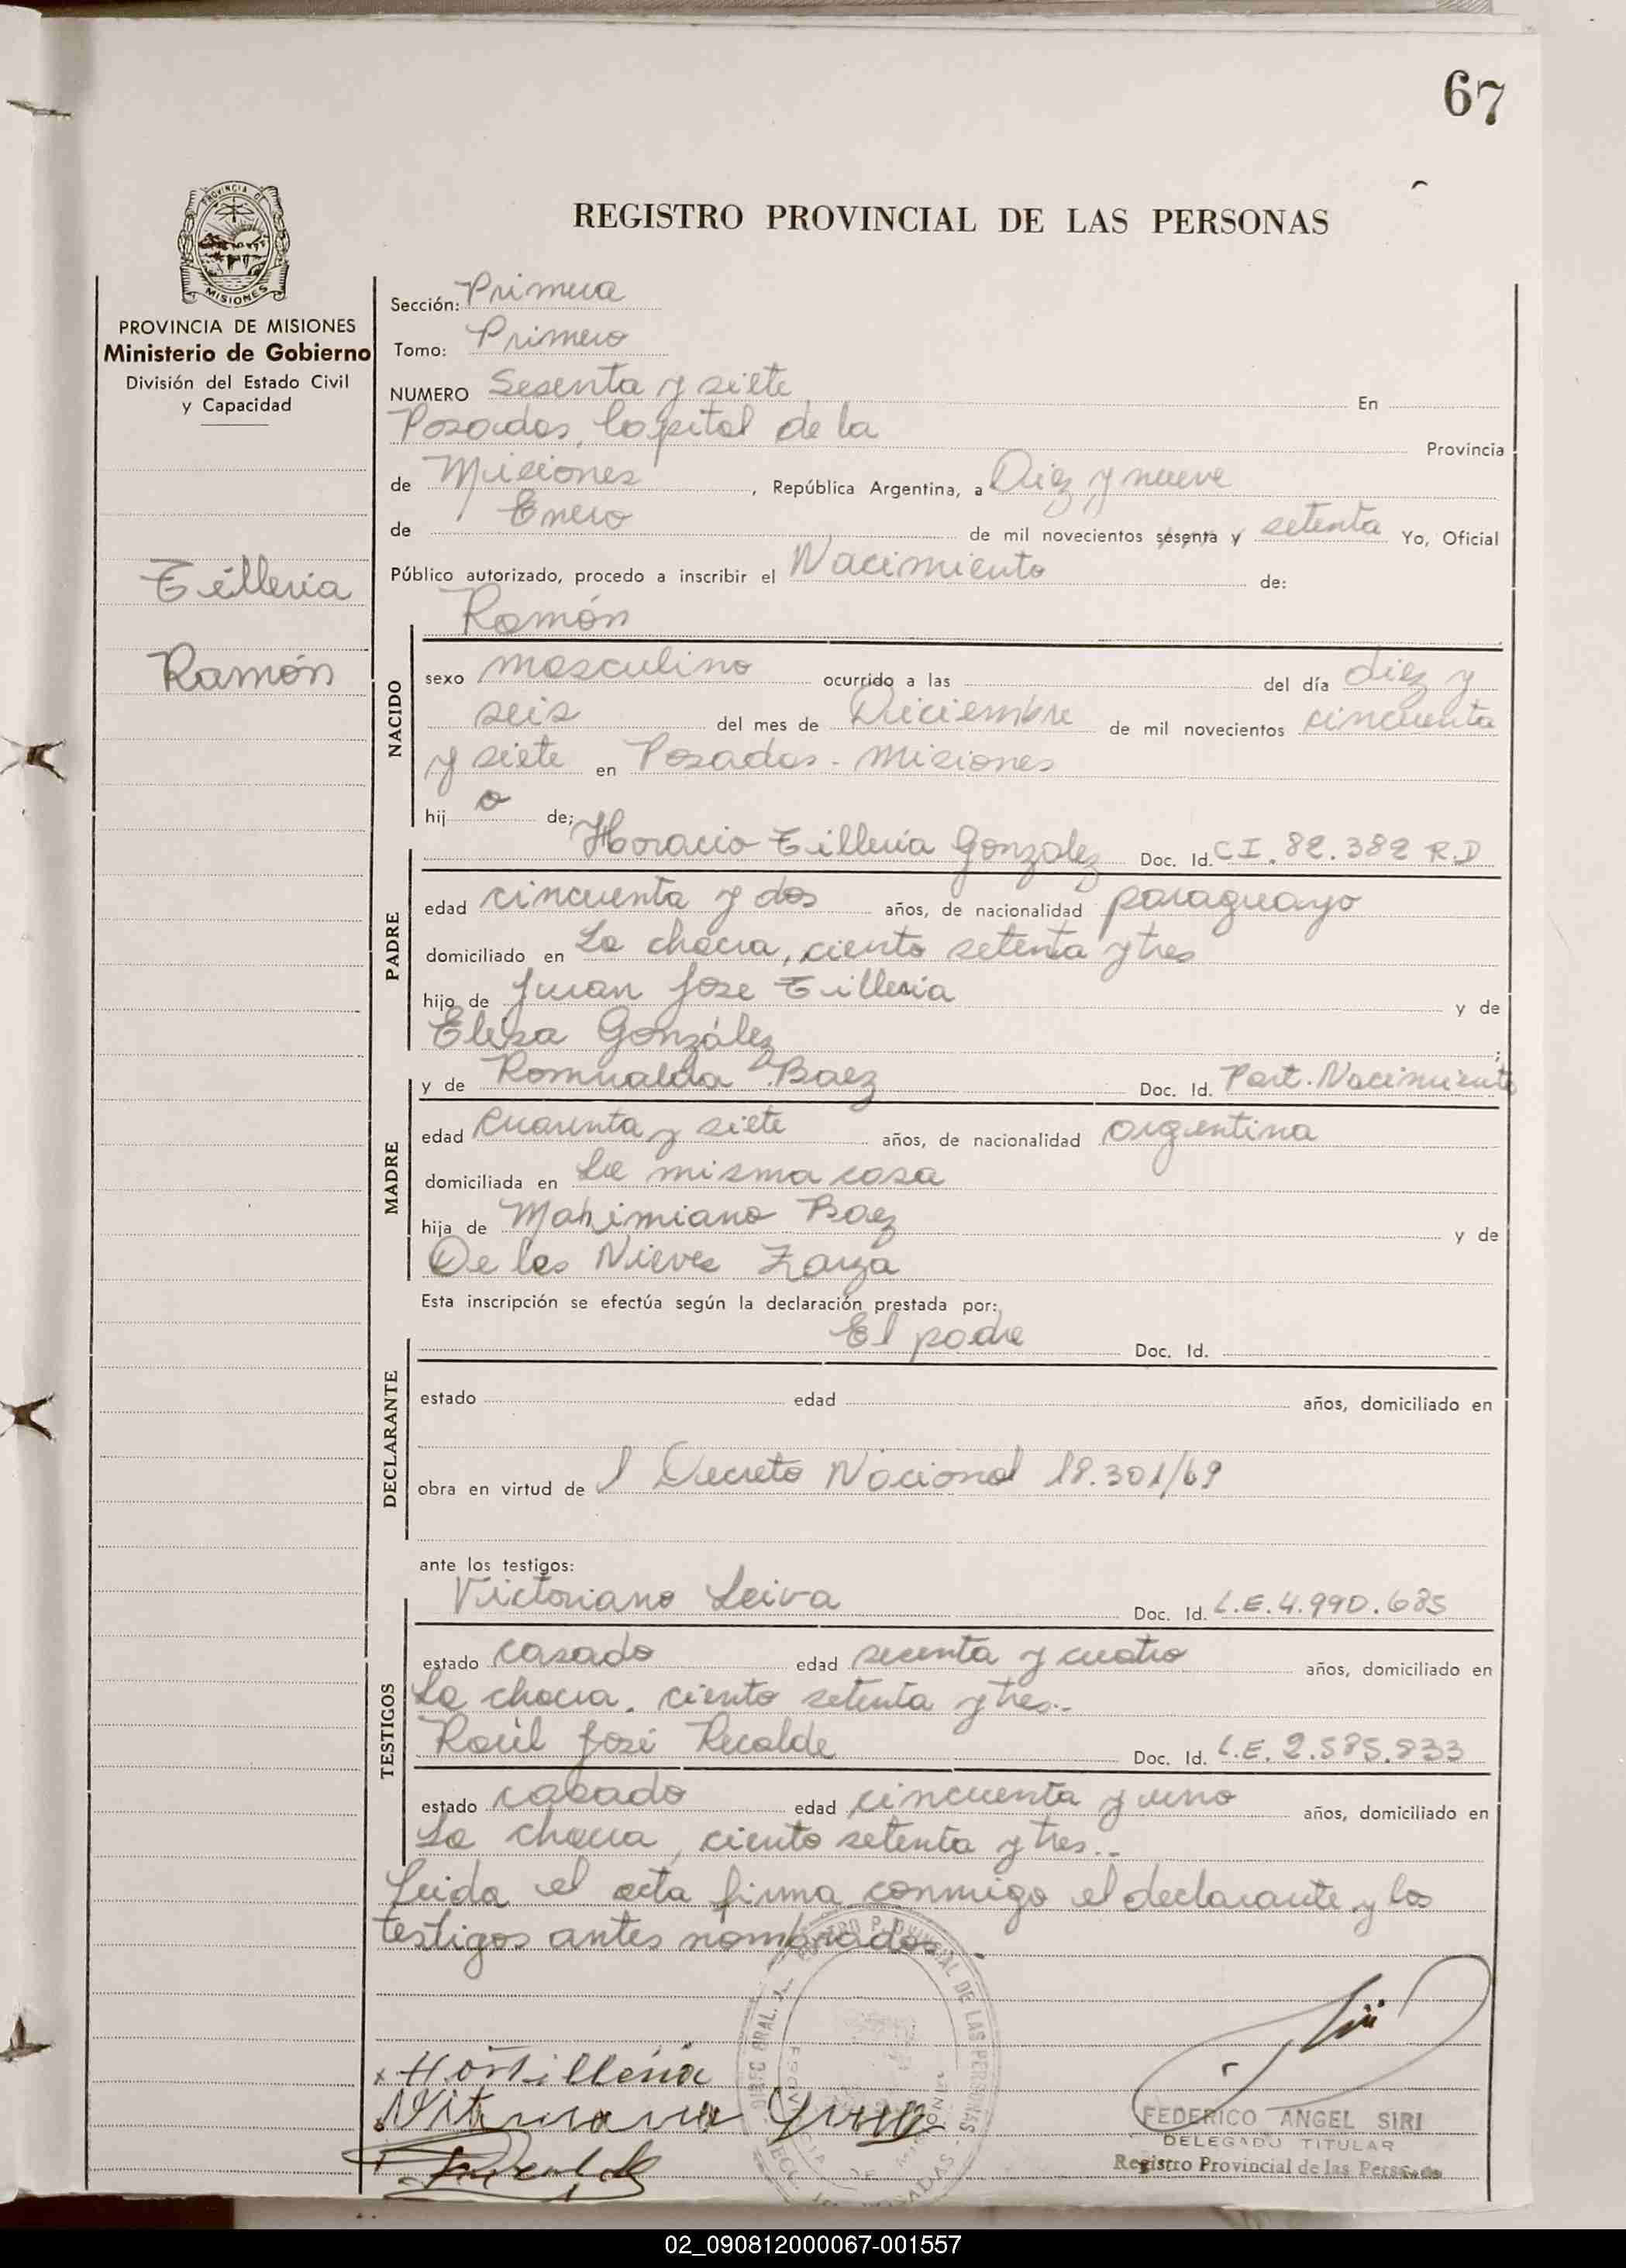 67
PROVINCIA DE MISIONES
REGISTRO PROVINCIAL DE LAS PERSONAS
PROVINCIA DE MISIONES
Ministerio de Gobierno
División del Estado Civil
y Capacidad
Tilleria
Ramón
Sección: Primera
Tomo: Primero
NUMERO Sesenta y siete En
Posadas, Capital de la Provincia
de Misiones, República Argentina, a Diez y nueve
de Enero de mil novecientos sesenta y setenta Yo, Oficial
Público autorizado, procedo a inscribir el Nacimiento de:
Ramón
NACIDO
sexo masculino ocurrido a las del día diez y
seis del mes de Diciembre de mil novecientos cincuenta
y siete en Posadas - Misiones
hijo de;
Horacio Tilleria Gonzalez Doc. Id. C I. 82.382 R.D
PADRE
edad cincuenta y dos años, de nacionalidad paraguayo
domiciliado en La chacra, ciento setenta y tres
hijo de Juan Jose Tilleria y de
Elisa González;
y de Romualda Baez Doc. Id. Part. Nacimiento
MADRE
edad cuarenta y siete años, de nacionalidad argentina
domiciliada en La misma casa
hija de Maximiano Baez y de
De las Nieves Zarza
Esta inscripción se efectúa según la declaración prestada por:
El padre Doc. Id.
DECLARANTE
estado edad años, domiciliado en
obra en virtud de l Decreto Nacional 18.301/69
ante los testigos:
Victoriano Leiva Doc. Id. L.E. 4.990.685
TESTIGOS
estado casado edad secenta y cuatro años, domiciliado en
La chacra, ciento setenta y tres.-
Raúl José Recalde Doc. Id. L.E. 2.585.833
estado casado edad cincuenta y uno años, domiciliado en
La chacra, ciento setenta y tres..
Leida el acta firma conmigo el declarante y los
testigos antes nombrados.
FEDERICO ANGEL SIRI
DELEGADO TITULAR
Registro Provincial de las Personas
02_090812000067-001557